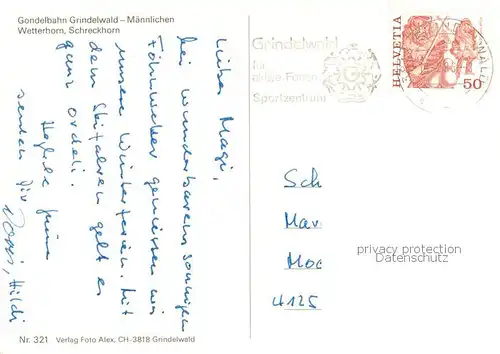 Gondelbahn Grindelwald – Männlichen
Wetterhorn, Schreckhorn
Liebe Magi,
bei wunderbarem sonnigen
Föhnwetter geniessen wir
unsere Winterferien. Mit
dem Skifahren geht es
ganz ordeli.
Herzliche Grüsse
senden Dir
Hildi
Nr. 321 Verlag Foto Alex, CH-3818 Grindelwald
Grindelwald
für
Ferien
Sportzentrum
HELVETIA
50
Sch
Mar
Moo
4125
privacy protection
Datenschutz